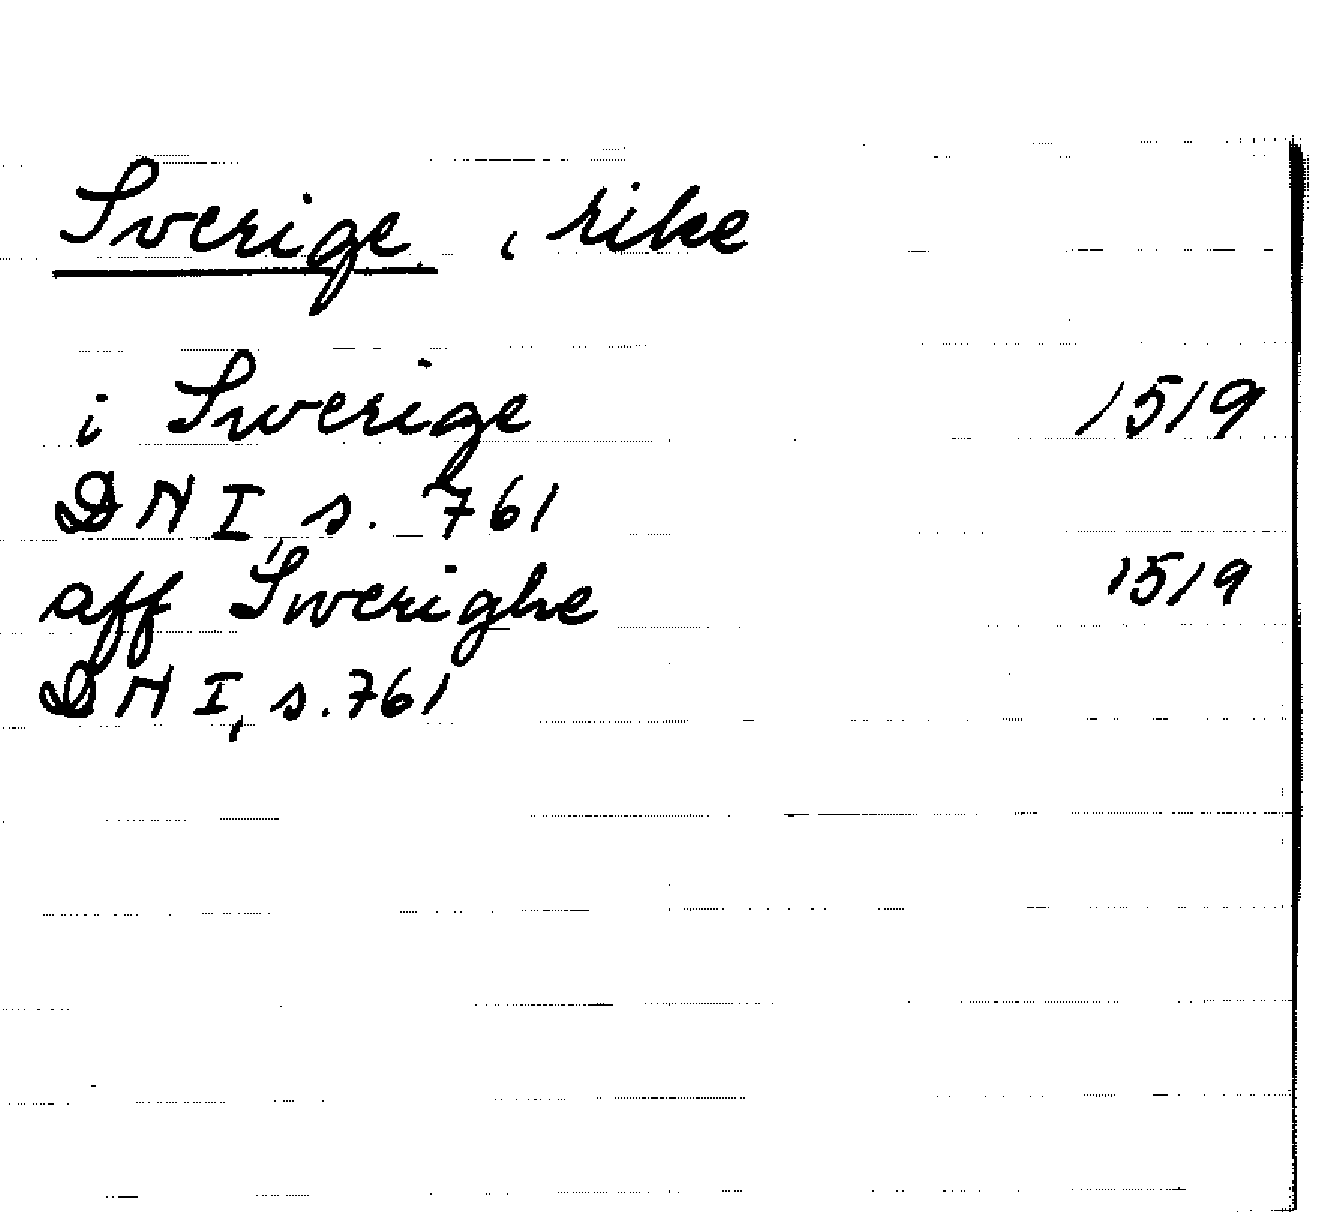 Sverige, rike
i Swerige 1519
DN I, s. 761
aff Swerighe 1519
DN I, s. 761